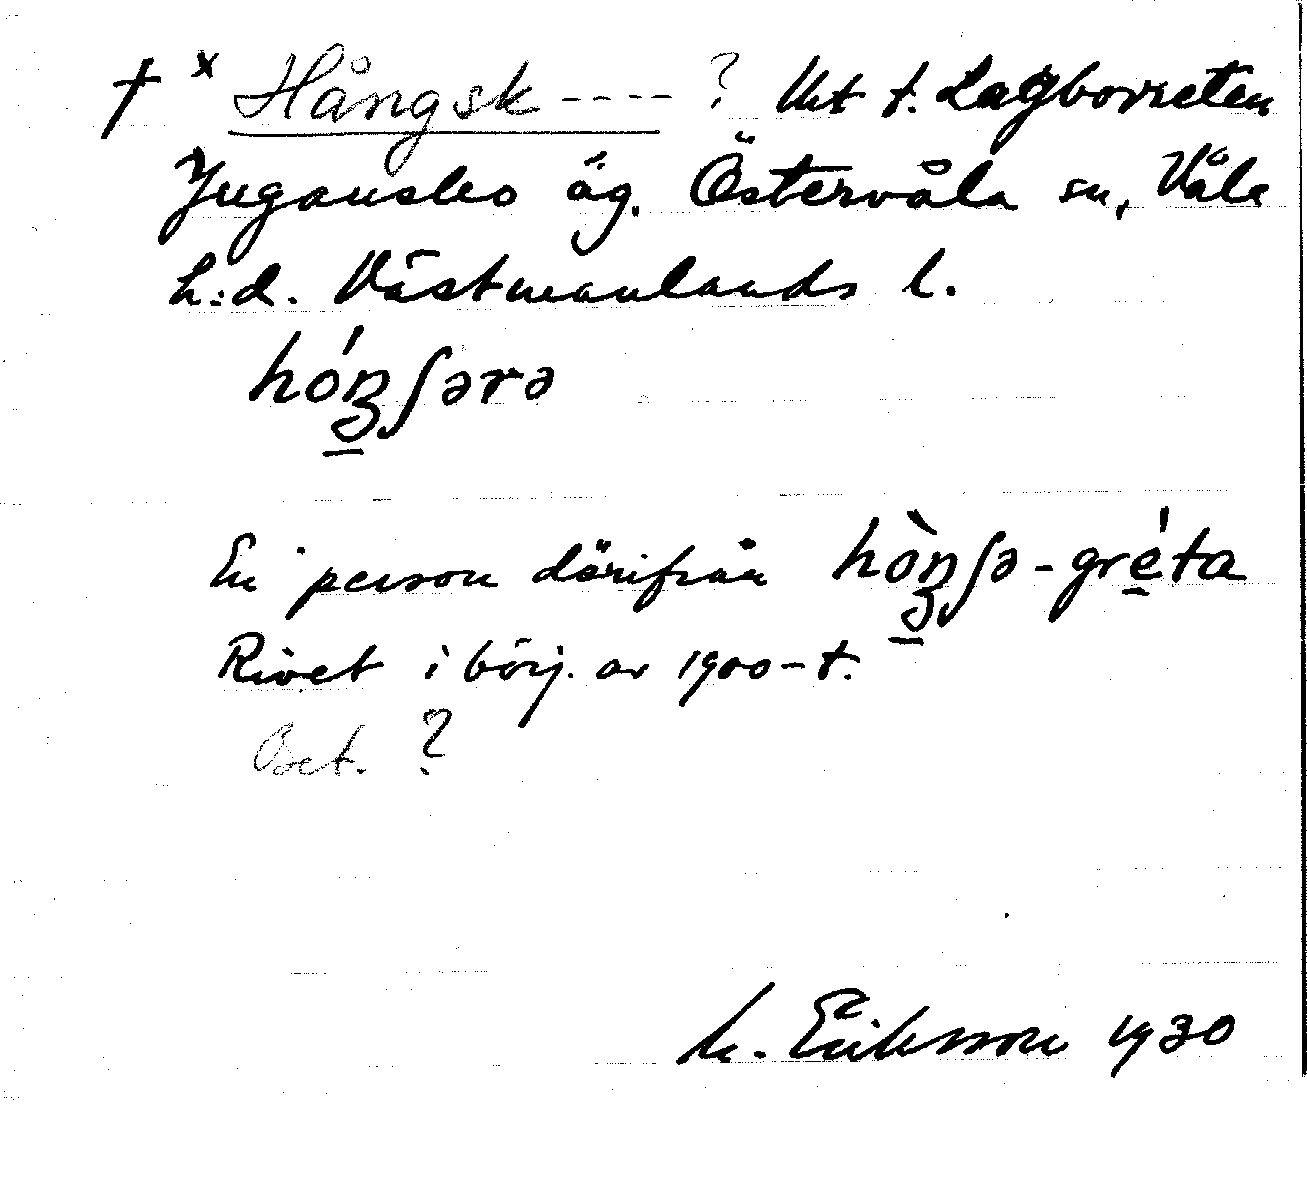 † x Hångsk ---- ? Ut t. Lagborreten
Jugansbo äg. Östervåla sn, Våla
h:d. Västmanlands l.
hóŋʃərə
En person därifrån hòŋʃə-gréta
Rivet i börj. av 1900-t.
Bet. ?
M. Eriksson 1930